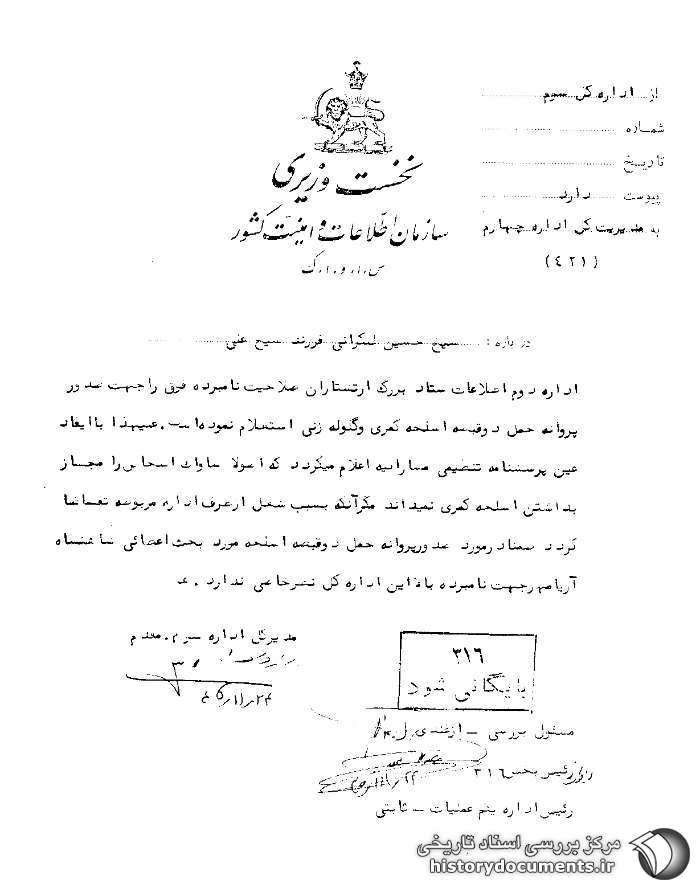 از اداره کل سوم
شماره
تاریخ
پیوست دارد
به مدیریت کل اداره چهارم
(٤٢١)
نخست وزیری
سازمان اطلاعات و امنیت کشور
س.ا.و.ا.ک
درباره : شیخ حسین لنکرانی فرزند شیخ علی
اداره دوم اطلاعات ستاد بزرگ ارتشتاران صلاحیت نامبرده فوق را جهت صدور
پروانه حمل دو قبضه اسلحه کمری و گلوله زنی استعلام نموده است. علیهذا با ایفاد
عین پرسشنامه تنظیمی مشارالیه اعلام میگردد که اصولا ساواک اشخاص را مجاز
بداشتن اسلحه کمری نمیداند مگر آنکه بسبب شغل از طرف اداره مربوطه تقاضا
گردد در مورد صدور پروانه حمل دو قبضه اسلحه مورد بحث اعطائی شاهنشاه
آریامهر جهت نامبرده بالا این اداره کل نظر خاصی ندارد .
مدیر کل اداره سوم . مقدم
۳۱۶
بایگانی شود
مسئول بررسی - ازغندی
رئیس بخش ۳۱۶
رئیس اداره یکم عملیات - ثابتی
مرکز بررسی اسناد تاریخی
historydocuments.ir